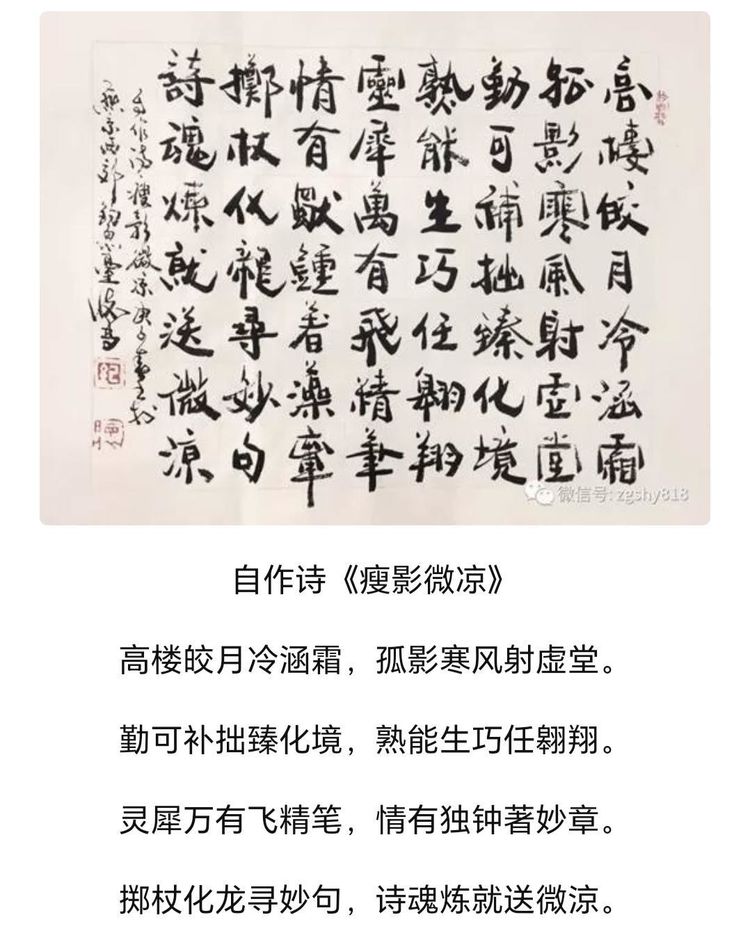 高樓皎月冷涵霜
孤影寒風射虛堂
勤可補拙臻化境
熟能生巧任翱翔
靈犀萬有飛精筆
情有獨鍾著藻章
擲杖化龍尋妙句
詩魂煉就送微涼
自作詩瘦影微涼庚子
燕京西郊
微信号: zgshy818
自作诗《瘦影微凉》
高楼皎月冷涵霜，孤影寒风射虚堂。
勤可补拙臻化境，熟能生巧任翱翔。
灵犀万有飞精笔，情有独钟著妙章。
掷杖化龙寻妙句，诗魂炼就送微涼。